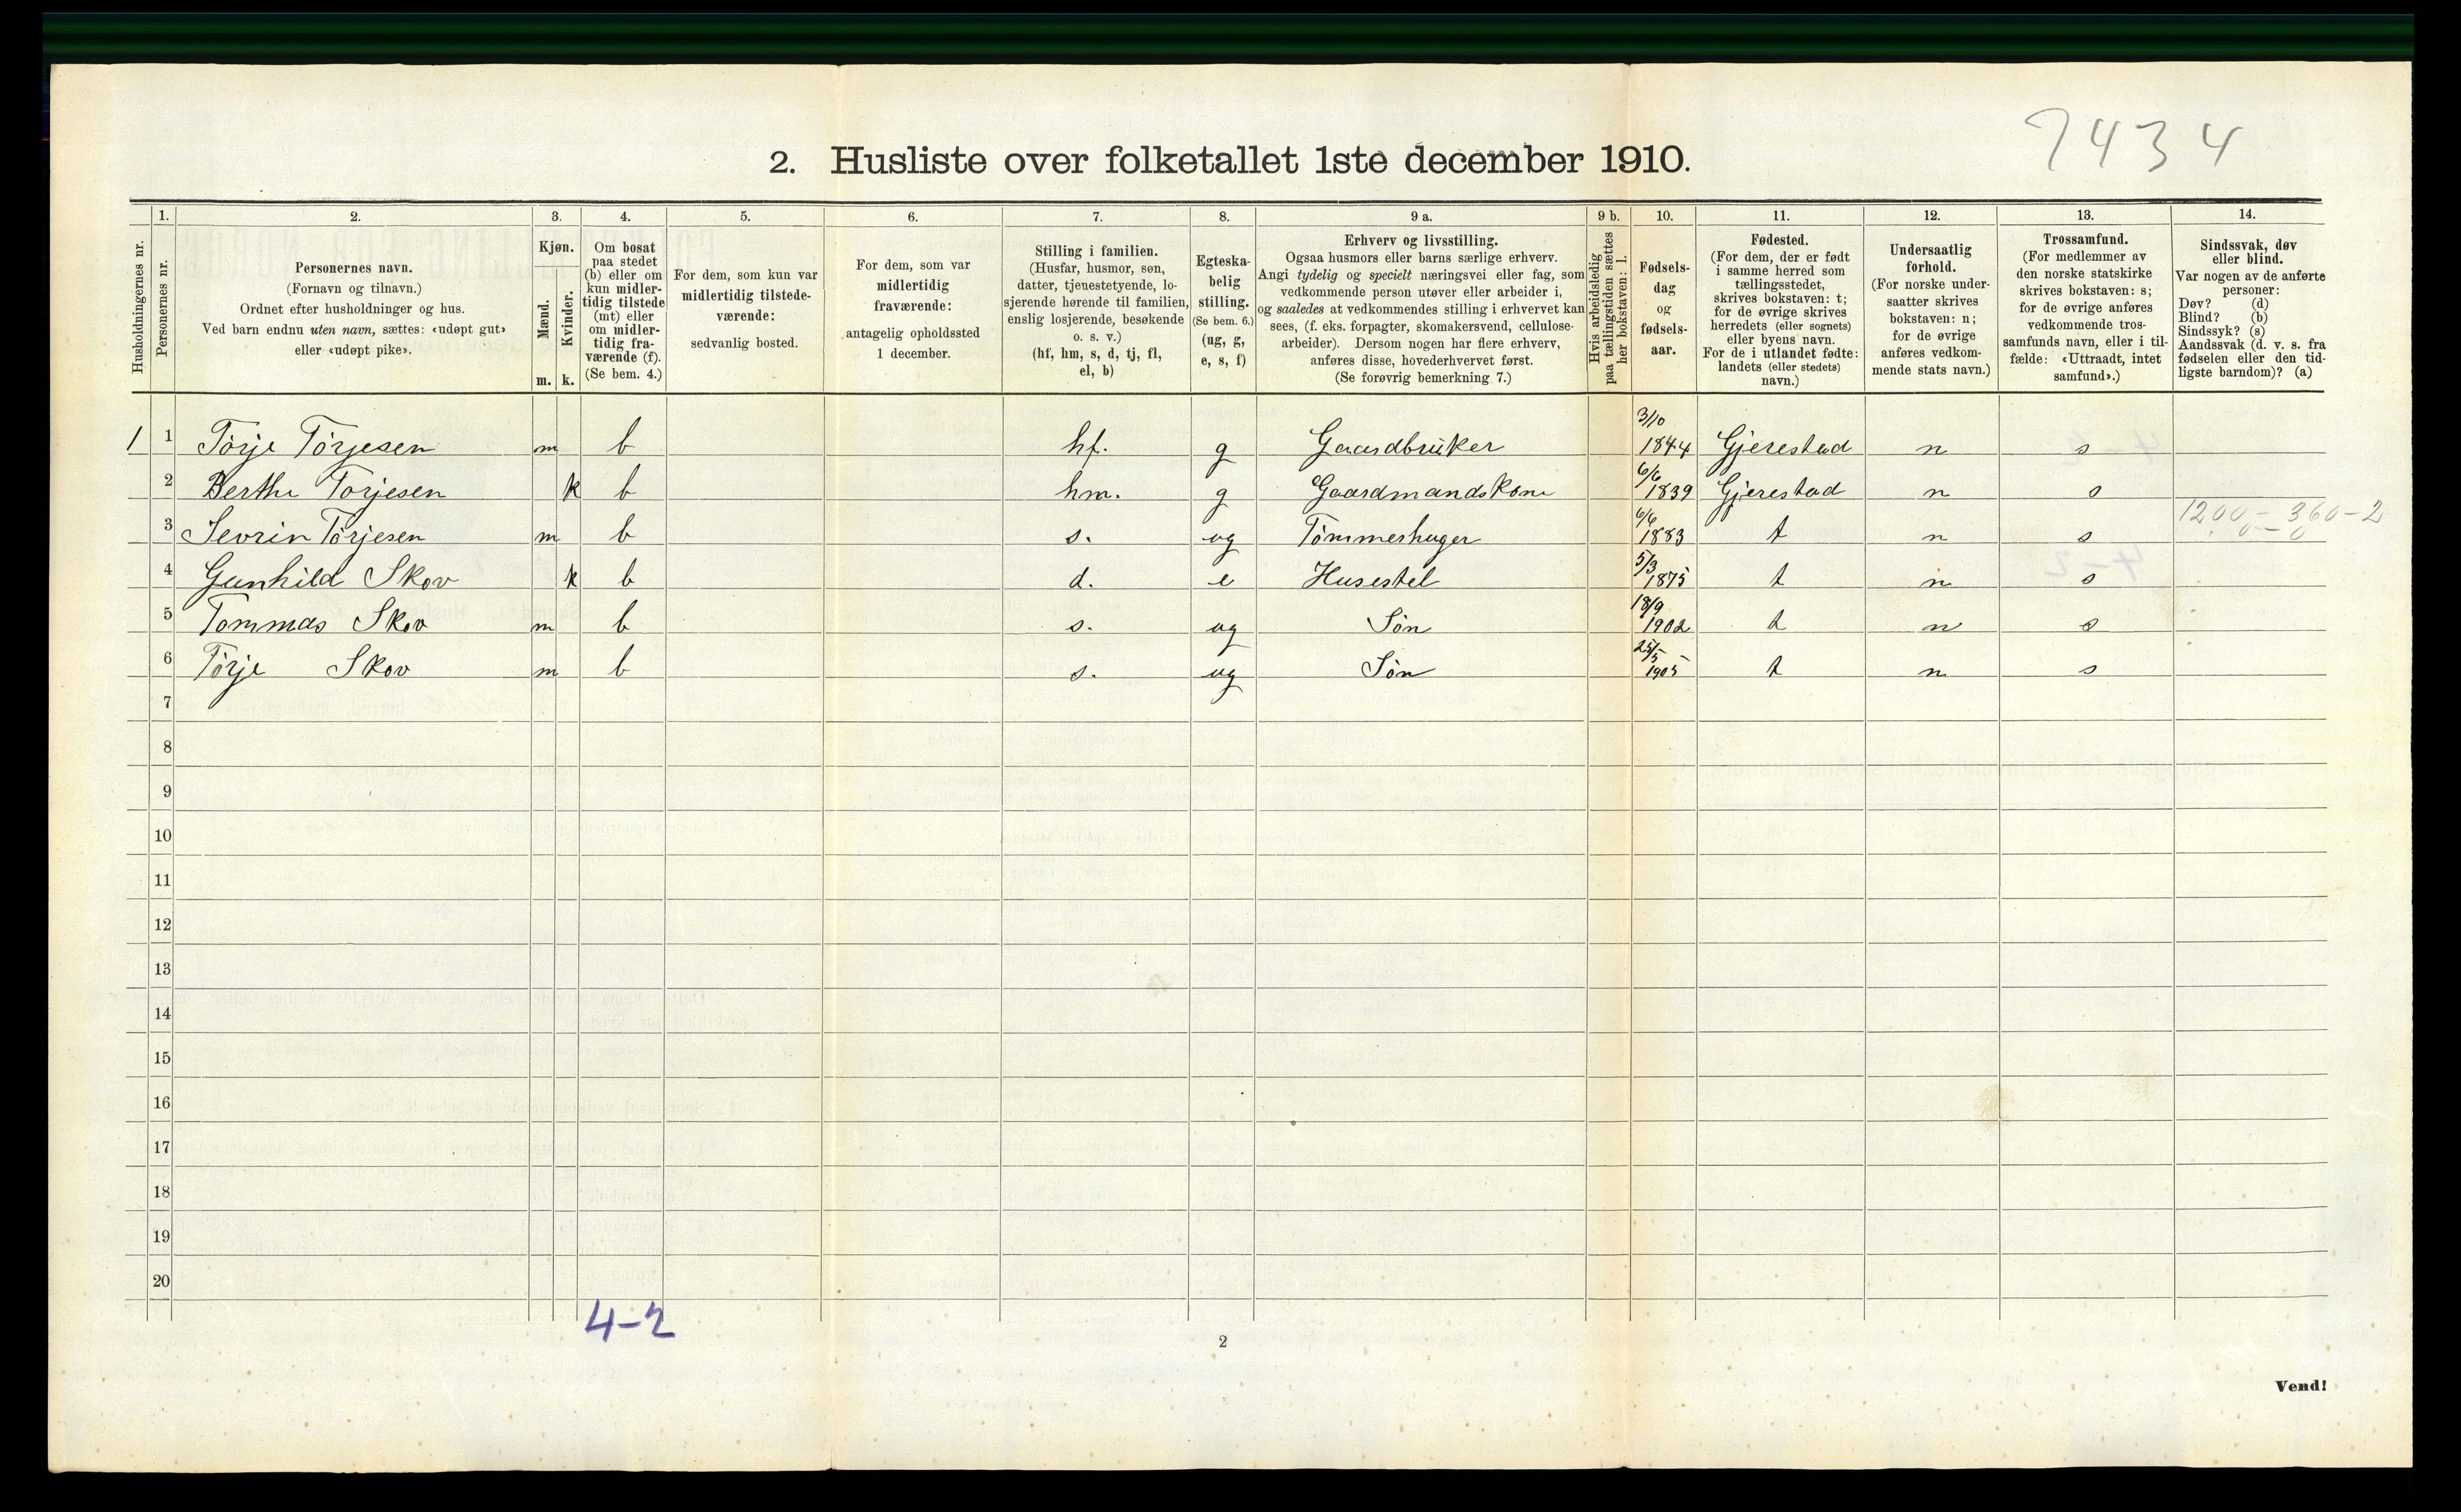 7434
2. Husliste over folketallet 1ste december 1910.
1. 2. 3. 4. 5. 6. 7. 8. 9 a. 9 b. 10. 11. 12. 13. 14.
Husholdningernes nr.
Personernes nr.
Personernes navn.
(Fornavn og tilnavn.)
Ordnet efter husholdninger og hus.
Ved barn endnu uten navn, sættes: «udøpt gut»
eller «udøpt pike».
Kjøn.
Mænd.
Kvinder.
m. k.
Om bosat
paa stedet
(b) eller om
kun midler-
tidig tilstede
(mt) eller
om midler-
tidig fra-
værende (f).
(Se bem. 4.)
For dem, som kun var
midlertidig tilstede-
værende:
sedvanlig bosted.
For dem, som var
midlertidig
fraværende:
antagelig opholdssted
1 december.
Stilling i familien.
(Husfar, husmor, søn,
datter, tjenestetyende, lo-
sjerende hørende til familien,
enslig losjerende, besøkende
o. s. v.)
(hf, hm, s, d, tj, fl,
el, b)
Egteska-
belig
stilling.
(Se bem. 6.)
(ug, g,
e, s, f)
Erhverv og livsstilling.
Ogsaa husmors eller barns særlige erhverv.
Angi tydelig og specielt næringsvei eller fag, som
vedkommende person utøver eller arbeider i,
og saaledes at vedkommendes stilling i erhvervet kan
sees, (f. eks. forpagter, skomakersvend, cellulose-
arbeider). Dersom nogen har flere erhverv,
anføres disse, hovederhvervet først.
(Se forøvrig bemerkning 7.)
Hvis arbeidsledig
paa tællingstiden sættes
her bokstaven: l.
Fødsels-
dag
og
fødsels-
aar.
Fødested.
(For dem, der er født
i samme herred som
tællingsstedet,
skrives bokstaven: t;
for de øvrige skrives
herredets (eller sognets)
eller byens navn.
For de i utlandet fødte:
landets (eller stedets)
navn.)
Undersaatlig
forhold.
(For norske under-
saatter skrives
bokstaven: n;
for de øvrige
anføres vedkom-
mende stats navn.)
Trossamfund.
(For medlemmer av
den norske statskirke
skrives bokstaven: s;
for de øvrige anføres
vedkommende tros-
samfunds navn, eller i til-
fælde: «Uttraadt, intet
samfund».)
Sindssvak, døv
eller blind.
Var nogen av de anførte
personer:
Døv? (d)
Blind? (b)
Sindssyk? (s)
Aandssvak (d. v. s. fra
fødselen eller den tid-
ligste barndom)? (a)
1 1 Tørje Tørjesen m b hf. g Gaardbruker 3/10 1844 Gjerestad n s
2 Berthe Torjesen k b hm. g Gaardmandskone 6/6 1839 Gjerestad n s
3 Sevrin Tørjesen m b s. ug Tømmerhuger 6/6 1883 t n s 1200 - 360 - 2
0 - 0
4 Gunhild Skov k b d. e Husestel 5/3 1875 t n s
5 Tommas Skov m b s. ug Søn 18/9 1902 t n s
6 Tørje Skov m b s. ug Søn 25/5 1905 t n s
7
8
9
10
11
12
13
14
15
16
17
18
19
20
4-2
2
Vend!